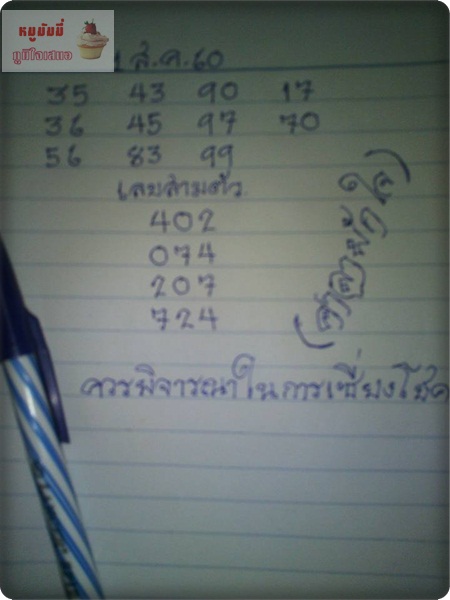 หมูมัมมี่
ภูมิใจเสมอ
1 ส.ค. 60
35 43 90 17
36 45 97 70
56 83 99
เลขสามตัว
402
074
207
724
ควรพิจารณาในการเสี่ยงโชค